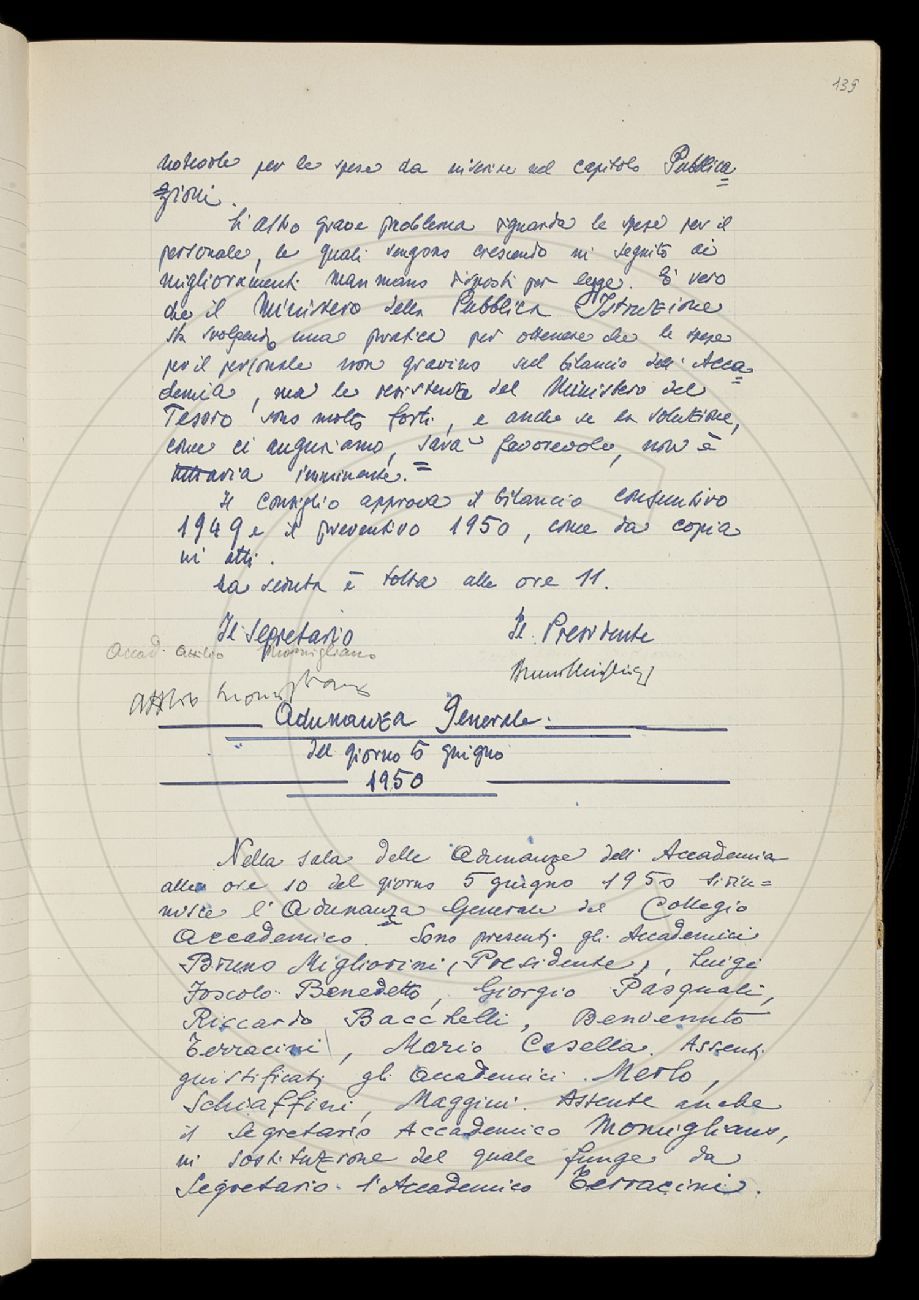 139
notevole per le spese da inserire nel capitolo Pubblica=
zioni.
L'altro grave problema riguarda le spese per il
personale, le quali vengono crescendo in seguito ai
miglioramenti man mano disposti per legge. È vero
che il Ministero della Pubblica Istruzione
sta svolgendo una pratica per ottenere che le spese
per il personale non gravino sul bilancio dell'Acca=
demia, ma le resistenze del Ministero del
Tesoro sono molto forti, e anche se la soluzione,
come ci auguriamo, sarà favorevole, non è
tuttavia imminente.=
Il Consiglio approva il bilancio consuntivo
1949 e il preventivo 1950, come da copia
in atti.
La seduta è tolta alle ore 11.
Il Segretario Il Presidente
Accad. Attilio Momigliano
Bruno Migliorini
Attilio Momigliano
Adunanza Generale.
del giorno 5 giugno
1950
Nella sala delle Adunanze dell'Accademia
alle ore 10 del giorno 5 giugno 1950 si riu=
nisce l'Adunanza Generale del Collegio
Accademico. Sono presenti gli Accademici
Bruno Migliorini (Presidente), Luigi
Foscolo Benedetto, Giorgio Pasquali,
Riccardo Bacchelli, Benvenuto
Terracini, Mario Casella. Assenti
giustificati gli accademici Merlo,
Schiaffini, Maggini. Assente anche
il Segretario Accademico Momigliano,
in sostituzione del quale funge da
Segretario l'Accademico Terracini.